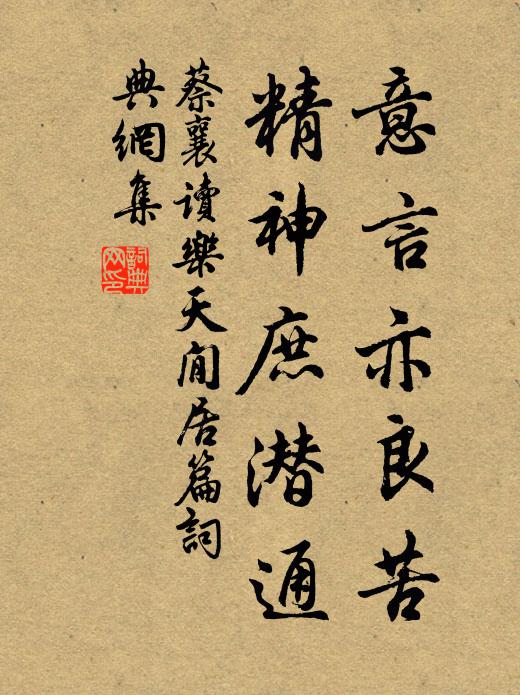 意言亦良苦
精神庶潜通
蔡襄讀樂天閒居篇詞
典網集
詞典
网印